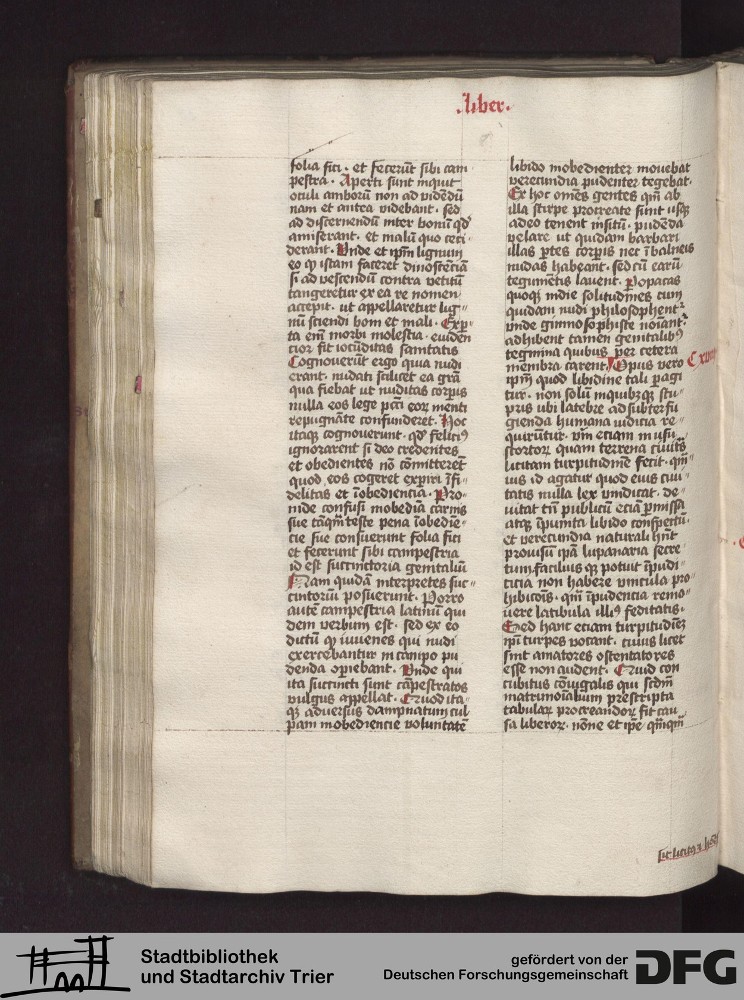 .liber.
folia fici · et fecerūt sibi cam
pestra · Aperti sunt inquit
oculi amborū non ad vidēdū
nam et antea videbant · sed
ad discernendū inter bonū qd'
amiserant · et malū quo ceci
derant · Vnde et ip̄m lignum
eo ꝙ istam faceret dinoscēciā
si ad vescendū contra vetitū
tangeretur ex ea re nomen
accepit · ut appellaretur lig⸗
nū sciendi boni et mali · Exp̄
ta em̄ morbi molestia · euiden
cior fit iocūditas sanitatis
Cognouerūt ergo quia nudi
erant · nudati scilicet ea grā
qua fiebat ut nuditas corp̄is
nulla eos lege pcc̄i eoꝝ menti
repugnāte confunderet · Hoc
itaqꝫ cognouerunt · qd' feliciꝰ
ignorarent si deo credentes
et obedientes nō cōmitterēt
quod eos cogeret exp̄iri īfi⸗
delitas et īobediencia · Pro⸗
inde confusi inobediā carnis
sue tāqm̄ teste pena īobediē⸗
cie sue consuerunt folia fici
et fecerunt sibi campestria
id est succinctoria genitaliū
Nam quidā interpretes suc⸗
cinctoriū posuerunt · Porro
autē campestria latinū qui
dem verbum est · sed ex eo
dictū ꝙ iuuenes qui nudi
exercebantur in campo pu
denda op̄iebant · Vnde qui
ita succincti sunt cāpestratos
vulgus appellat · Quod ita⸗
qꝫ aduersus dampnatum cul
pam inobediencie voluntatē
libido inobedienter mouebat
verecundia pudenter tegebat ·
Ex hoc om̄es gentes qm̄ ab
illa stirpe procreate sunt usqꝫ
adeo tenent insitū · pudēda
velare ut quidam barbari
illas p̄tes corp̄is nec ī balneis
nudas habeant · sed cū earū
tegumētis lauent · P opacas
quoqꝫ indie solitudīnes cum
quidam nudi philosophent᷑
vnde gimnosophiste noīant᷑
adhibent tamen genitalibꝰ
tegmina quibus per cetera
membra carent · Opus vero
ip̄m quod libidine tali pagi
tur · non solū inquibꝫqꝫ stu⸗
pris ubi latebre ad subterfu
gienda humana iudicia re⸗
quirūtur · vm̄ eciam in usu
scortoꝝ quam terrena ciuits̄
licitam turpitudinē fecit · qm̄
uis id agatur quod eius ciui⸗
tatis nulla lex vindicat · de⸗
uitat tn̄ publicū eciā p̄missa
atqꝫ īpunita libido conspectū ·
et verecundia naturali hn̄t
prouisū ip̄a lupanaria secre
tum · faciliusqꝫ potuit īpudi⸗
cicia non habere vincula pro⸗
hibicōis · qm̄ īpudencia remo⸗
uere latibula illiꝰ feditatis ·
Sed hanc eciam turpitudinē
ip̄i turpes vocant · cuius licet
sint amatores ostentatores
esse non audent · Quid con
cubitus coniugalis qui scd̄m
matrimoīalium prescripta
tabulaꝝ procreandoꝝ fit cau
sa liberoꝝ · nōne et ip̄e qm̄qm̄
Stadtbibliothek
und Stadtarchiv Trier
gefördert von der
Deutschen Forschungsgemeinschaft
DFG